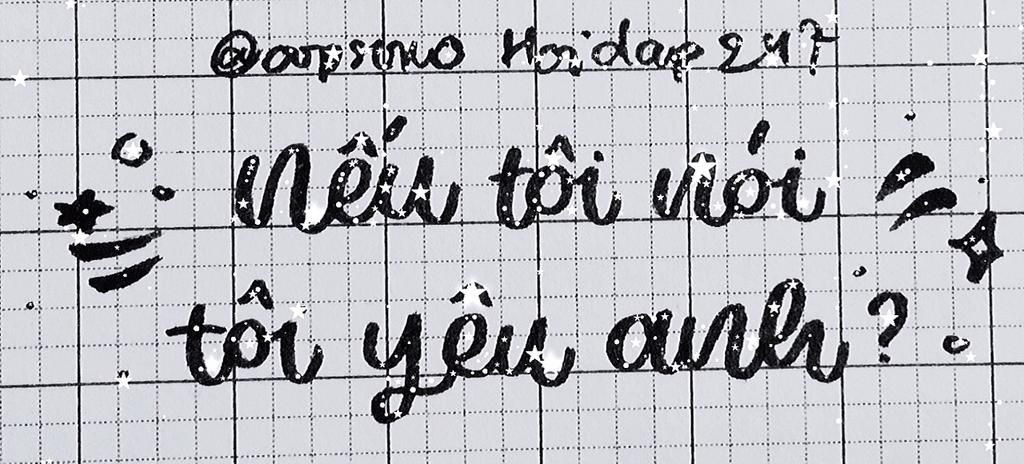 Hoidap247
Nếu tôi nói
tôi yêu anh?